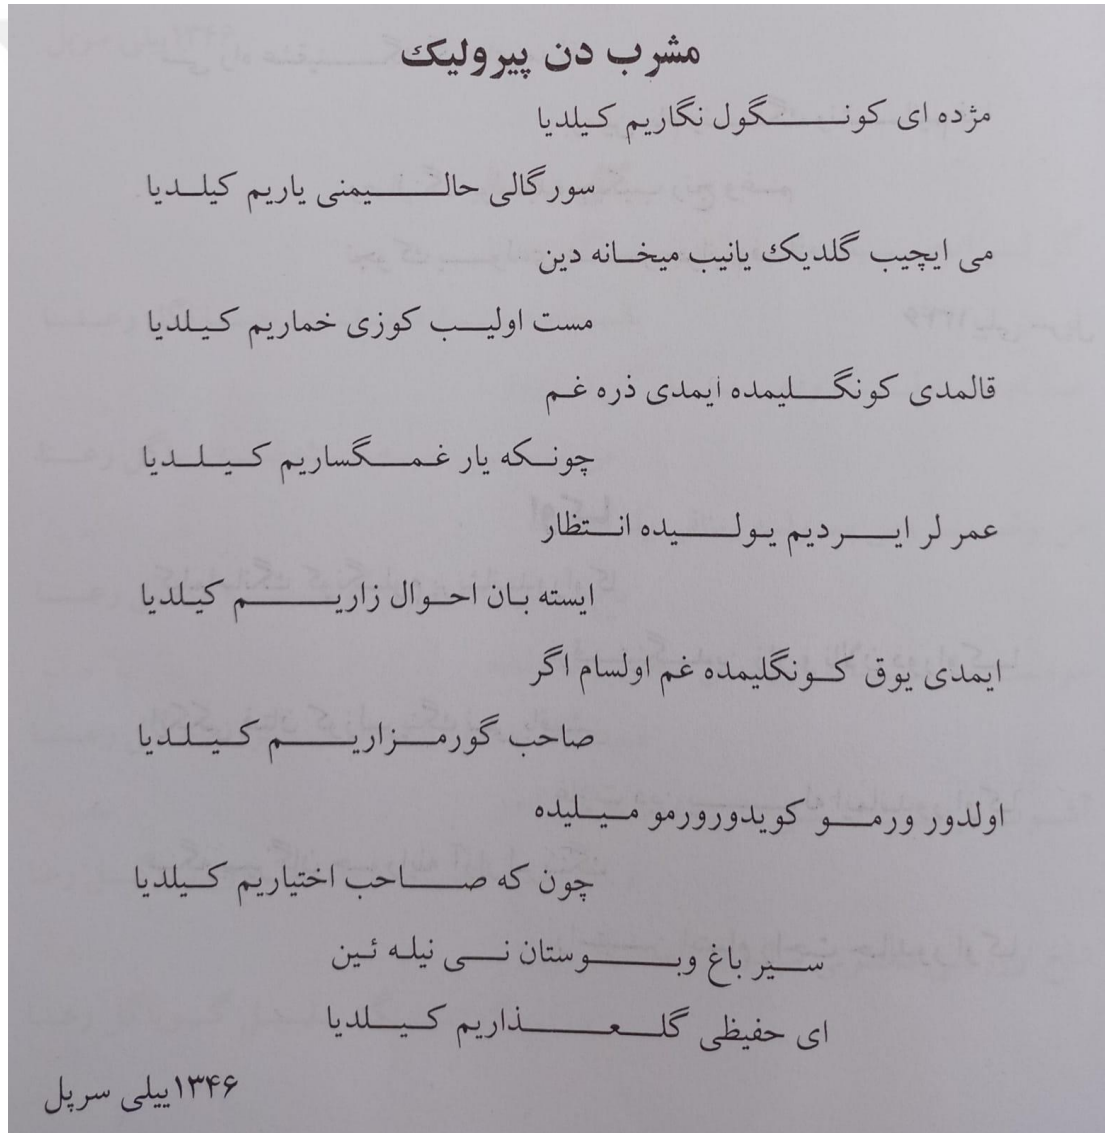 مشرب دن پیرولیک
مژده ای کونگول نگاریم کیلدیا
سورگالی حالیمنی یاریم کیلدیا
می ایچیب گلدیک یانیب میخانه دین
مست اولیب کوزی خماریم کیلدیا
قالمدی کونگلیمده ایمدی ذره غم
چونکه یار غمگساریم کیلدیا
عمر لر ایردیم یولیده انتظار
ایسته بان احوال زاریم کیلدیا
ایمدی یوق کونگلیمده غم اولسام اگر
صاحب گورمزاریم کیلدیا
اولدور ورمو کویدورورمو میلیده
چون که صاحب اختیاریم کیلدیا
سیر باغ وبوستان نی نیله ئین
ای حفیظی گلعذاریم کیلدیا
۱۳۴۶ییلی سرپل